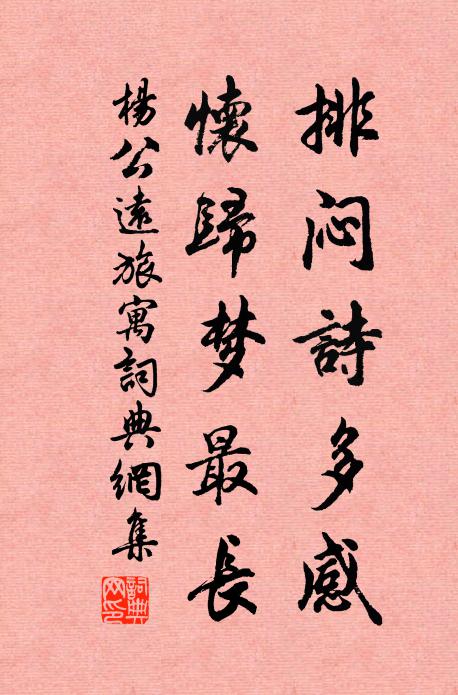 排闷詩多感
懷歸梦最長
楊公遠旅寓詞典網集
詞典
网印